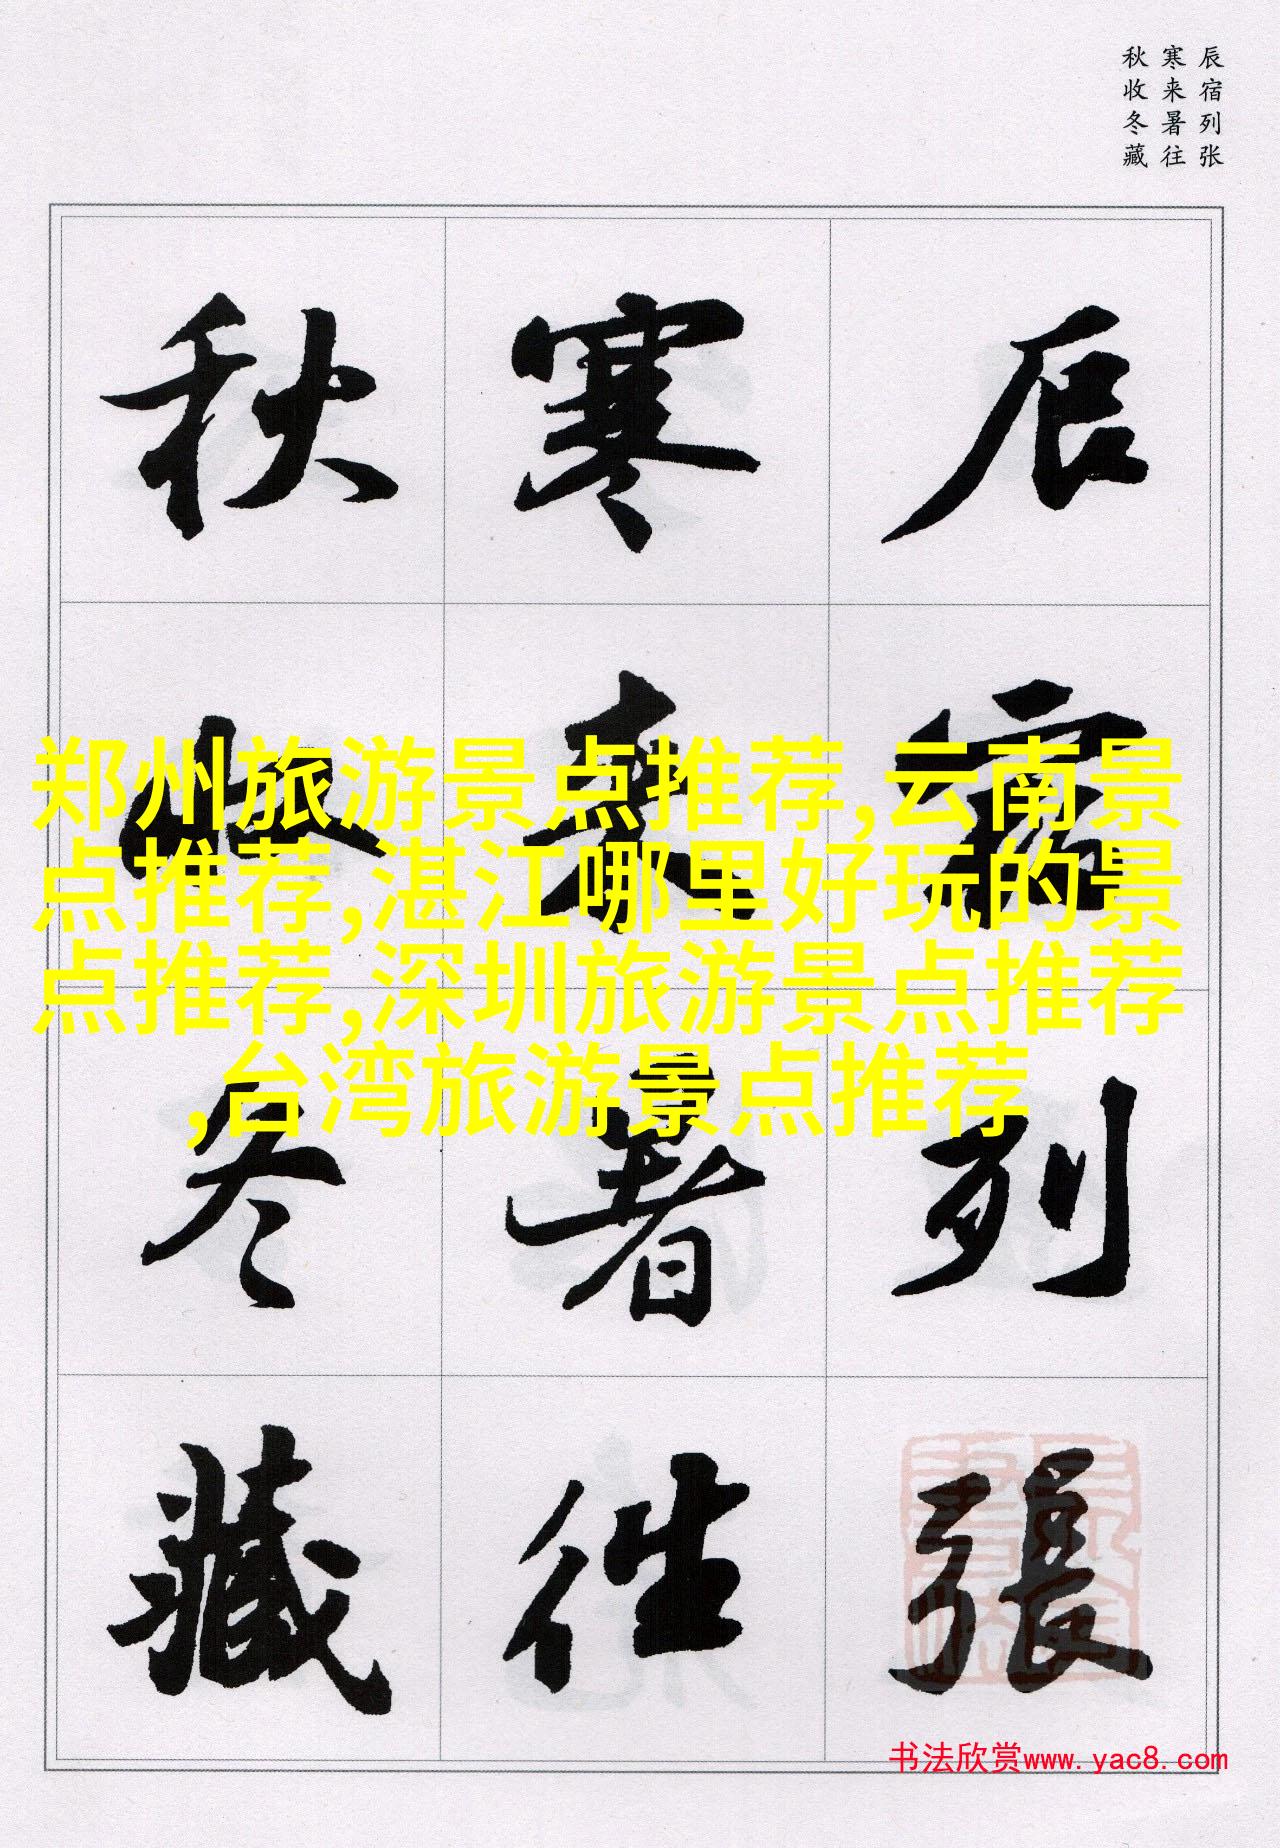 辰宿列张
寒来暑往
秋收冬藏
辰宿列張
寒来暑往
秋收冬藏
郑州旅游景点推荐,云南景
点推荐,湛江哪里好玩的景
点推荐,深圳旅游景点推荐
,台湾旅游景点推荐
书法欣赏www.yac8.com